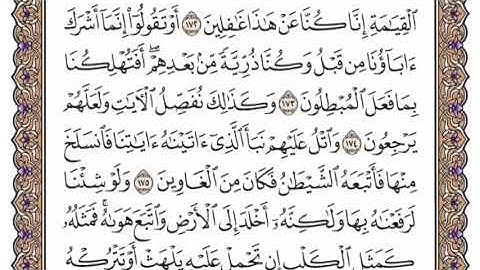 ٱلْقِيَٰمَةِ إِنَّا كُنَّا عَنْ هَٰذَا غَٰفِلِينَ ١٧٢ أَوْ تَقُولُوٓا۟ إِنَّمَآ أَشْرَكَ
ءَابَآؤُنَا مِن قَبْلُ وَكُنَّا ذُرِّيَّةً مِّنۢ بَعْدِهِمْ ۖ أَفَتُهْلِكُنَا
بِمَا فَعَلَ ٱلْمُبْطِلُونَ ١٧٣ وَكَذَٰلِكَ نُفَصِّلُ ٱلْءَايَٰتِ وَلَعَلَّهُمْ
يَرْجِعُونَ ١٧٤ وَٱتْلُ عَلَيْهِمْ نَبَأَ ٱلَّذِىٓ ءَاتَيْنَٰهُ ءَايَٰتِنَا فَٱنسَلَخَ
مِنْهَا فَأَتْبَعَهُ ٱلشَّيْطَٰنُ فَكَانَ مِنَ ٱلْغَاوِينَ ١٧٥ وَلَوْ شِئْنَا
لَرَفَعْنَٰهُ بِهَا وَلَٰكِنَّهُۥٓ أَخْلَدَ إِلَى ٱلْأَرْضِ وَٱتَّبَعَ هَوَىٰهُ ۚ فَمَثَلُهُۥ
كَمَثَلِ ٱلْكَلْبِ إِن تَحْمِلْ عَلَيْهِ يَلْهَثْ أَوْ تَتْرُكْهُ